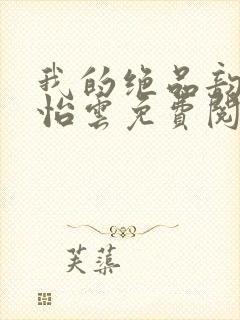 我的绝品
怡雲免費閱
芙蕖